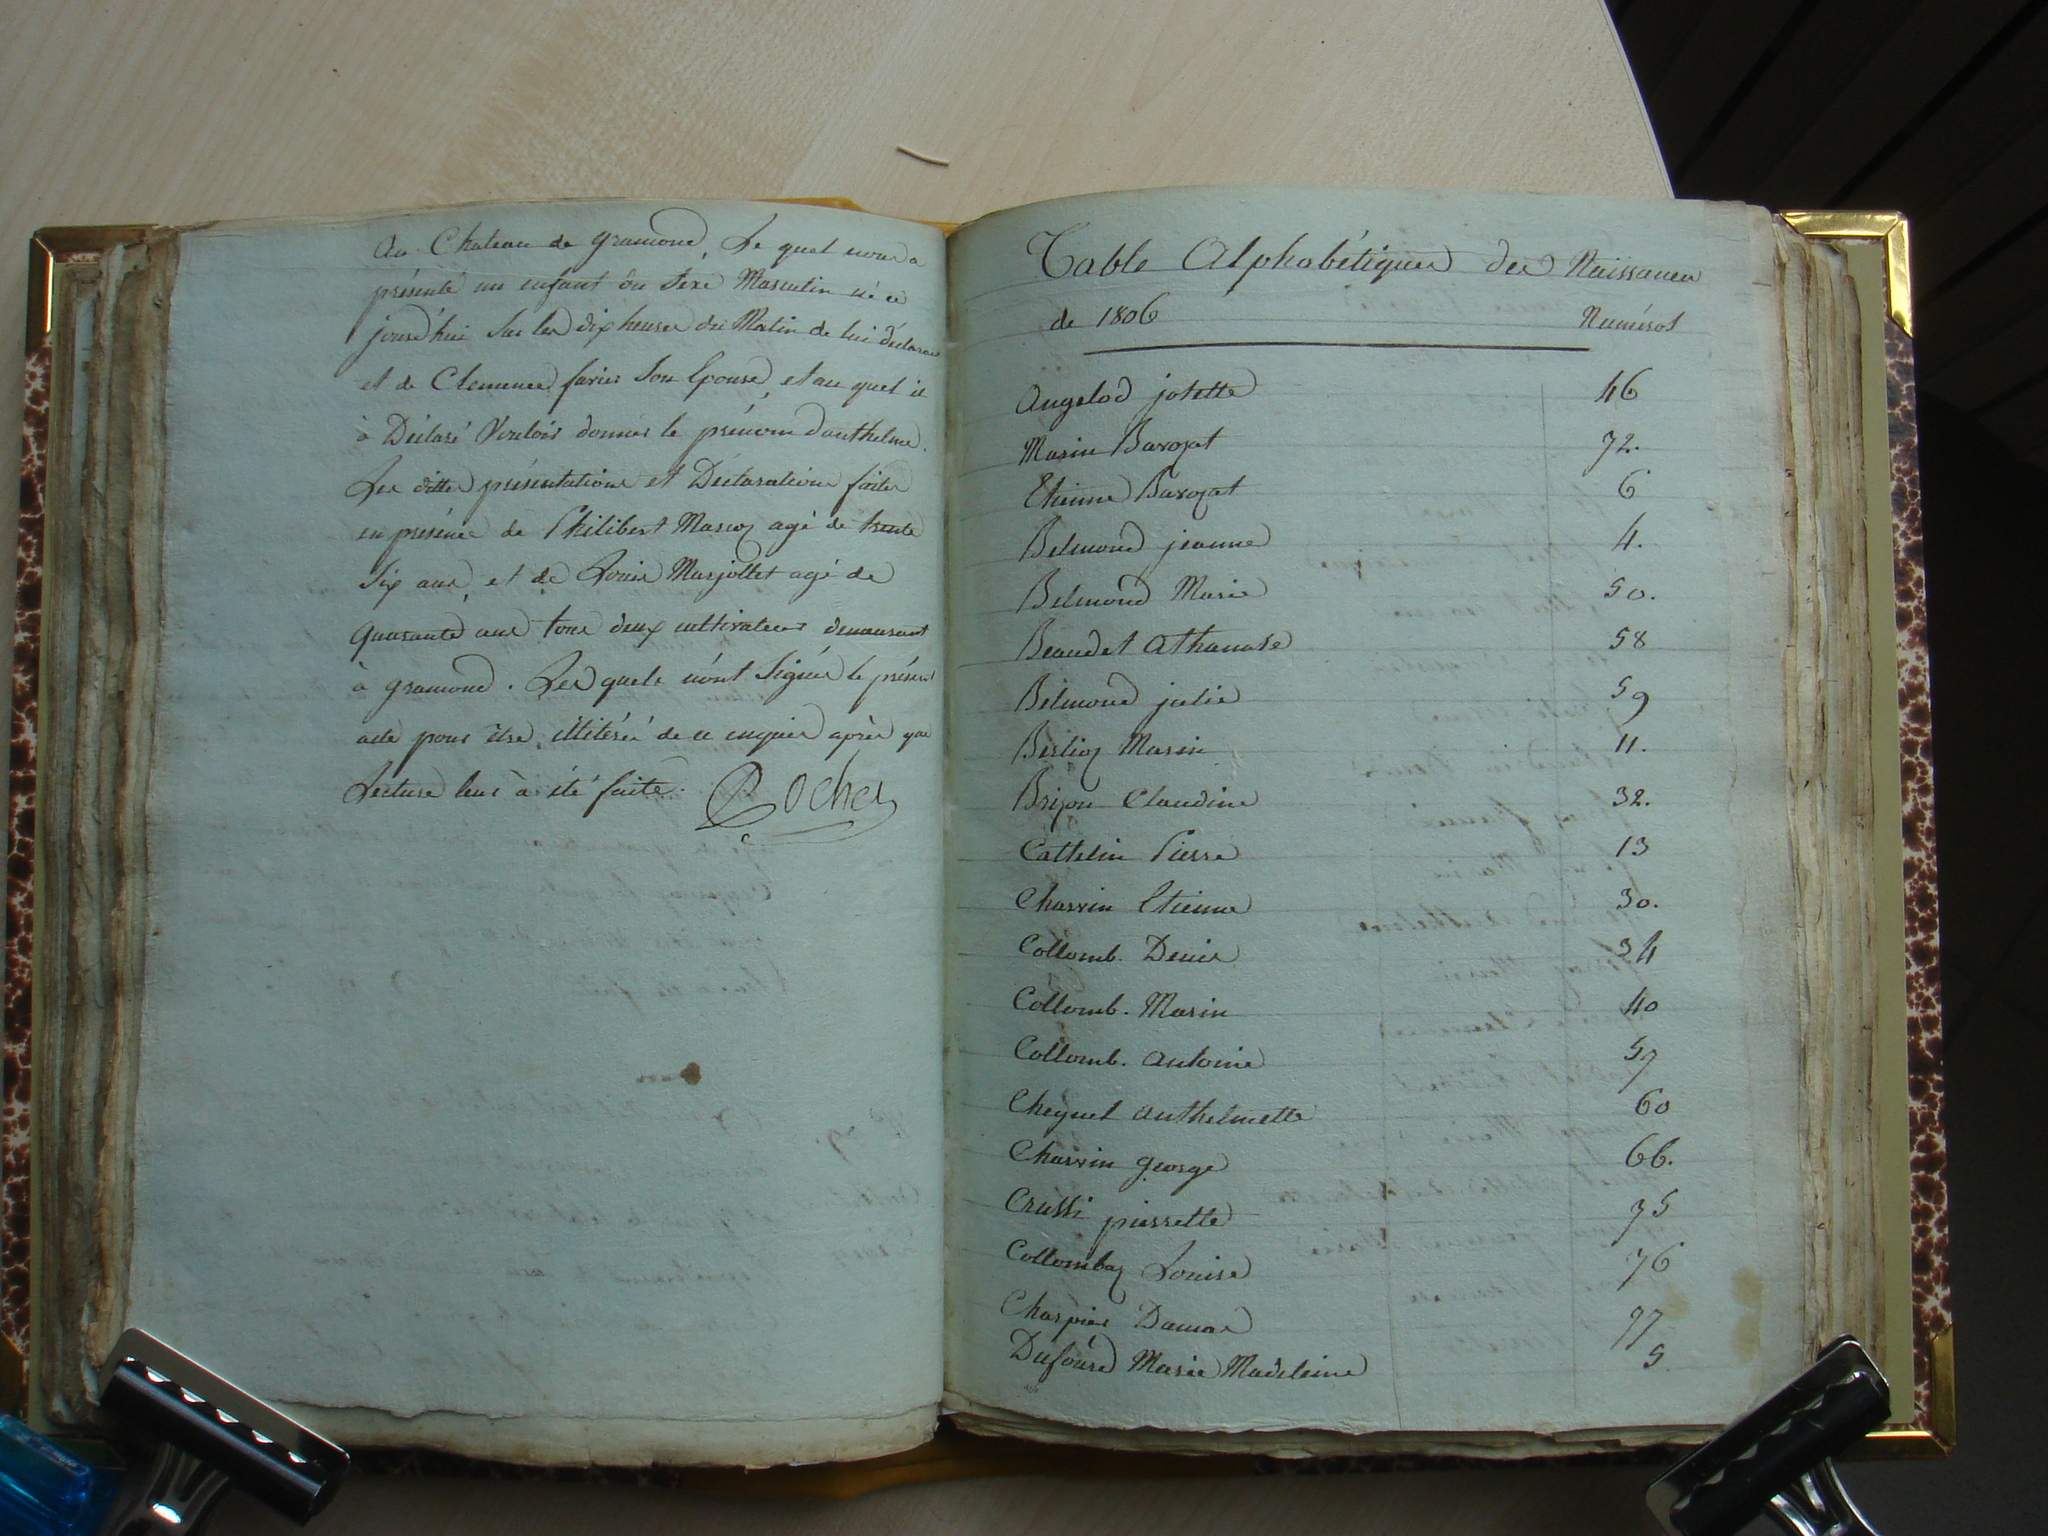 Au Chateau de gramond, Le quel nous a
présenté un enfant du Sexe Masculin né ce
jourd'hui Sur les dix heures du Matin de lui déclarant
et de Clemence favier Son Epouse, et au quel il
à Déclaré Vouloir donner le prénom d'anthelme.
Les dittes présentations et Déclarations faites
en présence de Philibert Marcoz agé de trente
Six ans, et de Louis Marjollet agé de
quarante ans tous deux cultivateurs demeurant
à gramond. Les quels n'ont Signés le présent
acte pour être illitéré de ce enquis après que
Lecture leur à été faite. Rocher
Table Alphabétiques des Naissances
de 1806 Numéros
Angelod josette 46
Marin Barozat 72.
Etienne Barozat 6
Belmond jeanne 4.
Belmond Marie 50.
Beaudet Athanase 58
Belmond julie 59
Berlioz Marin 11.
Brijon Claudine 32.
Cattelin Pierre 13
Charvin Etienne 30.
Collomb. Denis 34
Collomb. Marin 40
Collomb. antoine 57
Cheynel anthelmette 60
Charvin george 66.
Crussi pierrette 75
Collombaz Louise 76
Charpier Damas 77
Dufourd Marie Madeleine 5